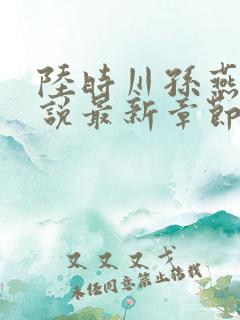 陸時川孫燕
說最新章節
又又又戈
未经同意禁止搭载